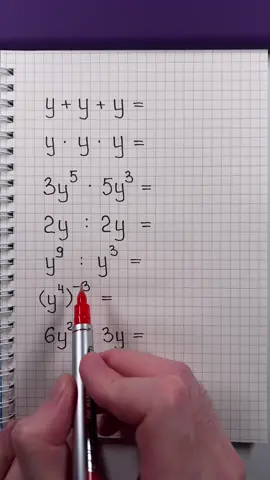 y + y + y =
y · y · y =
3y⁵ · 5y³ =
2y : 2y =
y⁹ : y³ =
(y⁴)⁻³ =
6y² 3y =